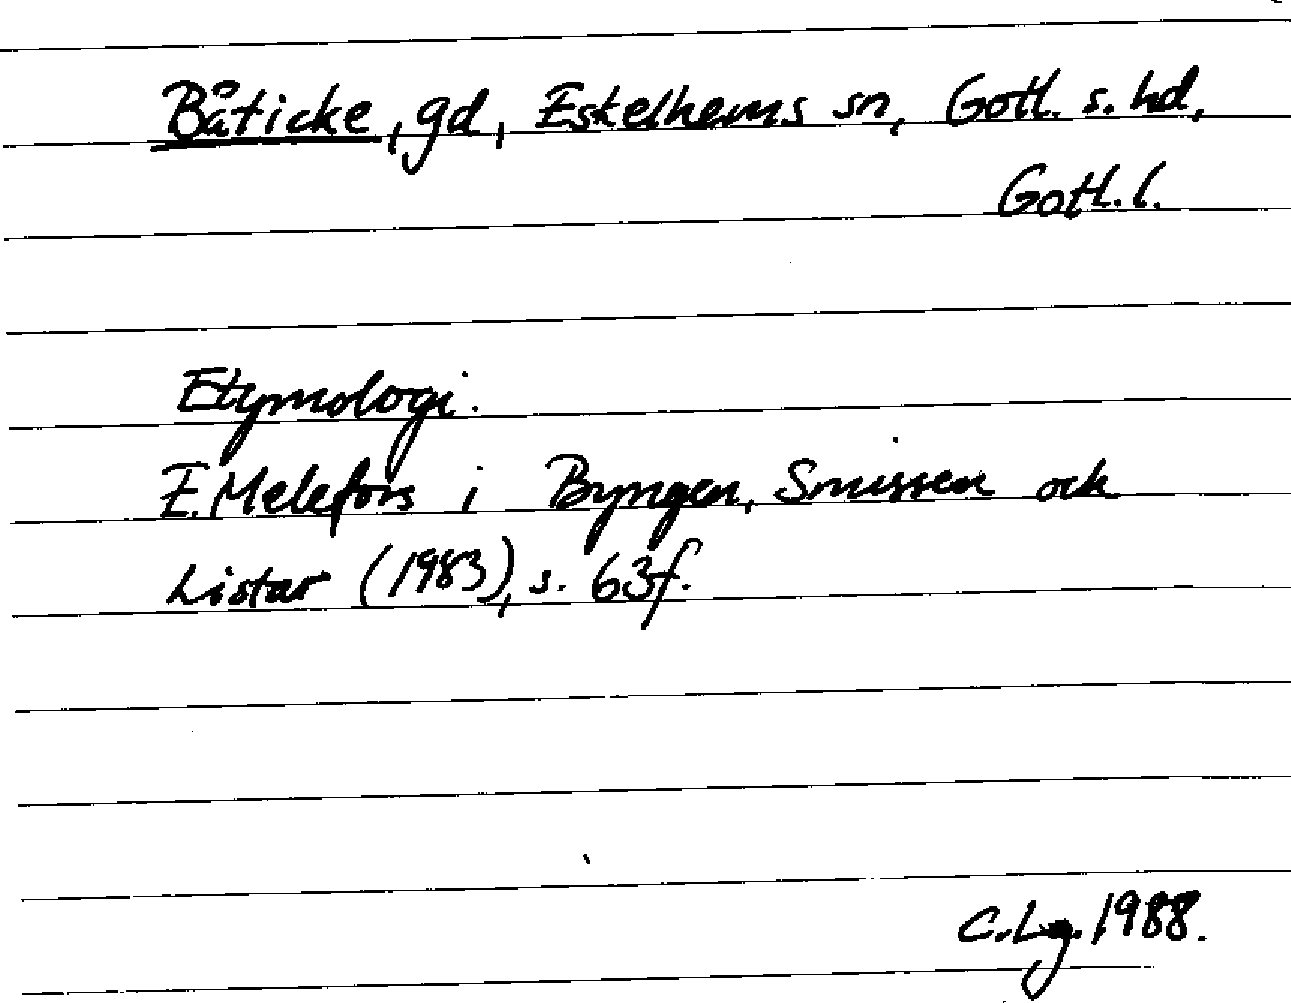 Båticke, gd, Eskelhems sn, Gotl. s. hd,
Gotl. l.
Etymologi.
E. Melefors i Byngen, Smissen och
Listar (1983), s. 63f.
C. Lg. 1988.